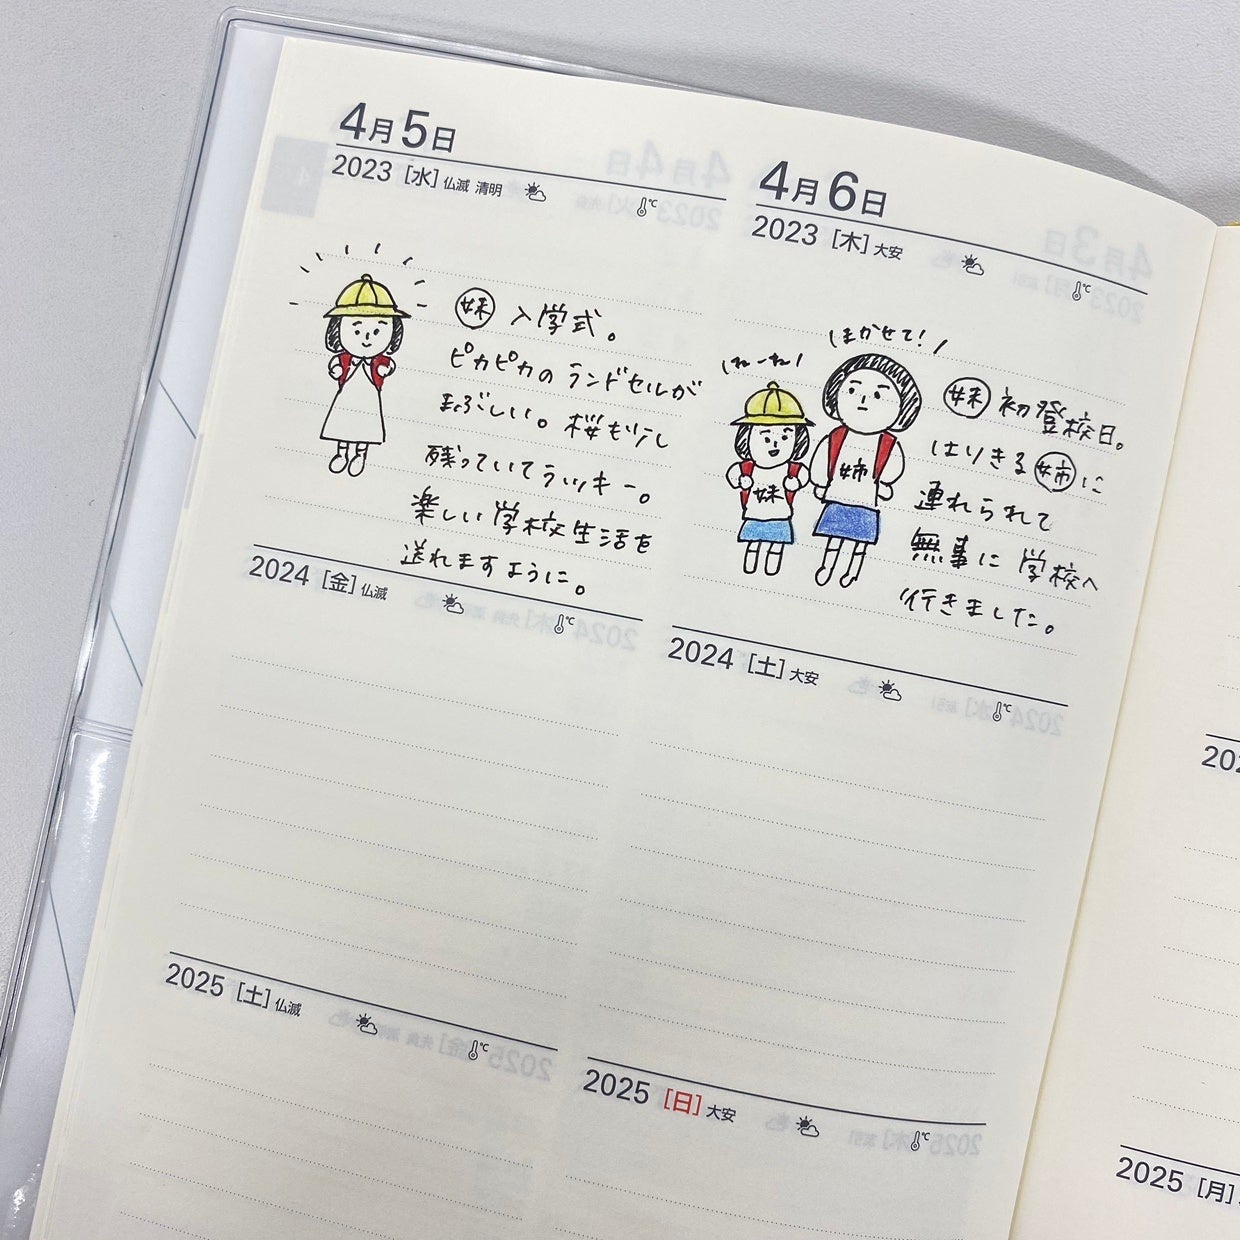 4月5日
2023 [水] 仏滅 清明
℃
妹 入学式。
ピカピカの ランドセルが
まぶしい。桜も少し
残っていてラッキー。
楽しい 学校生活を
送れますように。
2024 [金] 仏滅
℃
2025 [土] 仏滅
℃
4月6日
2023 [木] 大安
℃
まかせて!
ねーね!
妹
姉
妹 初登校日。
はりきる 姉に
連れられて
無事に 学校へ
行きました。
2024 [土] 大安
℃
2025 [日] 大安
℃
2025 [月]